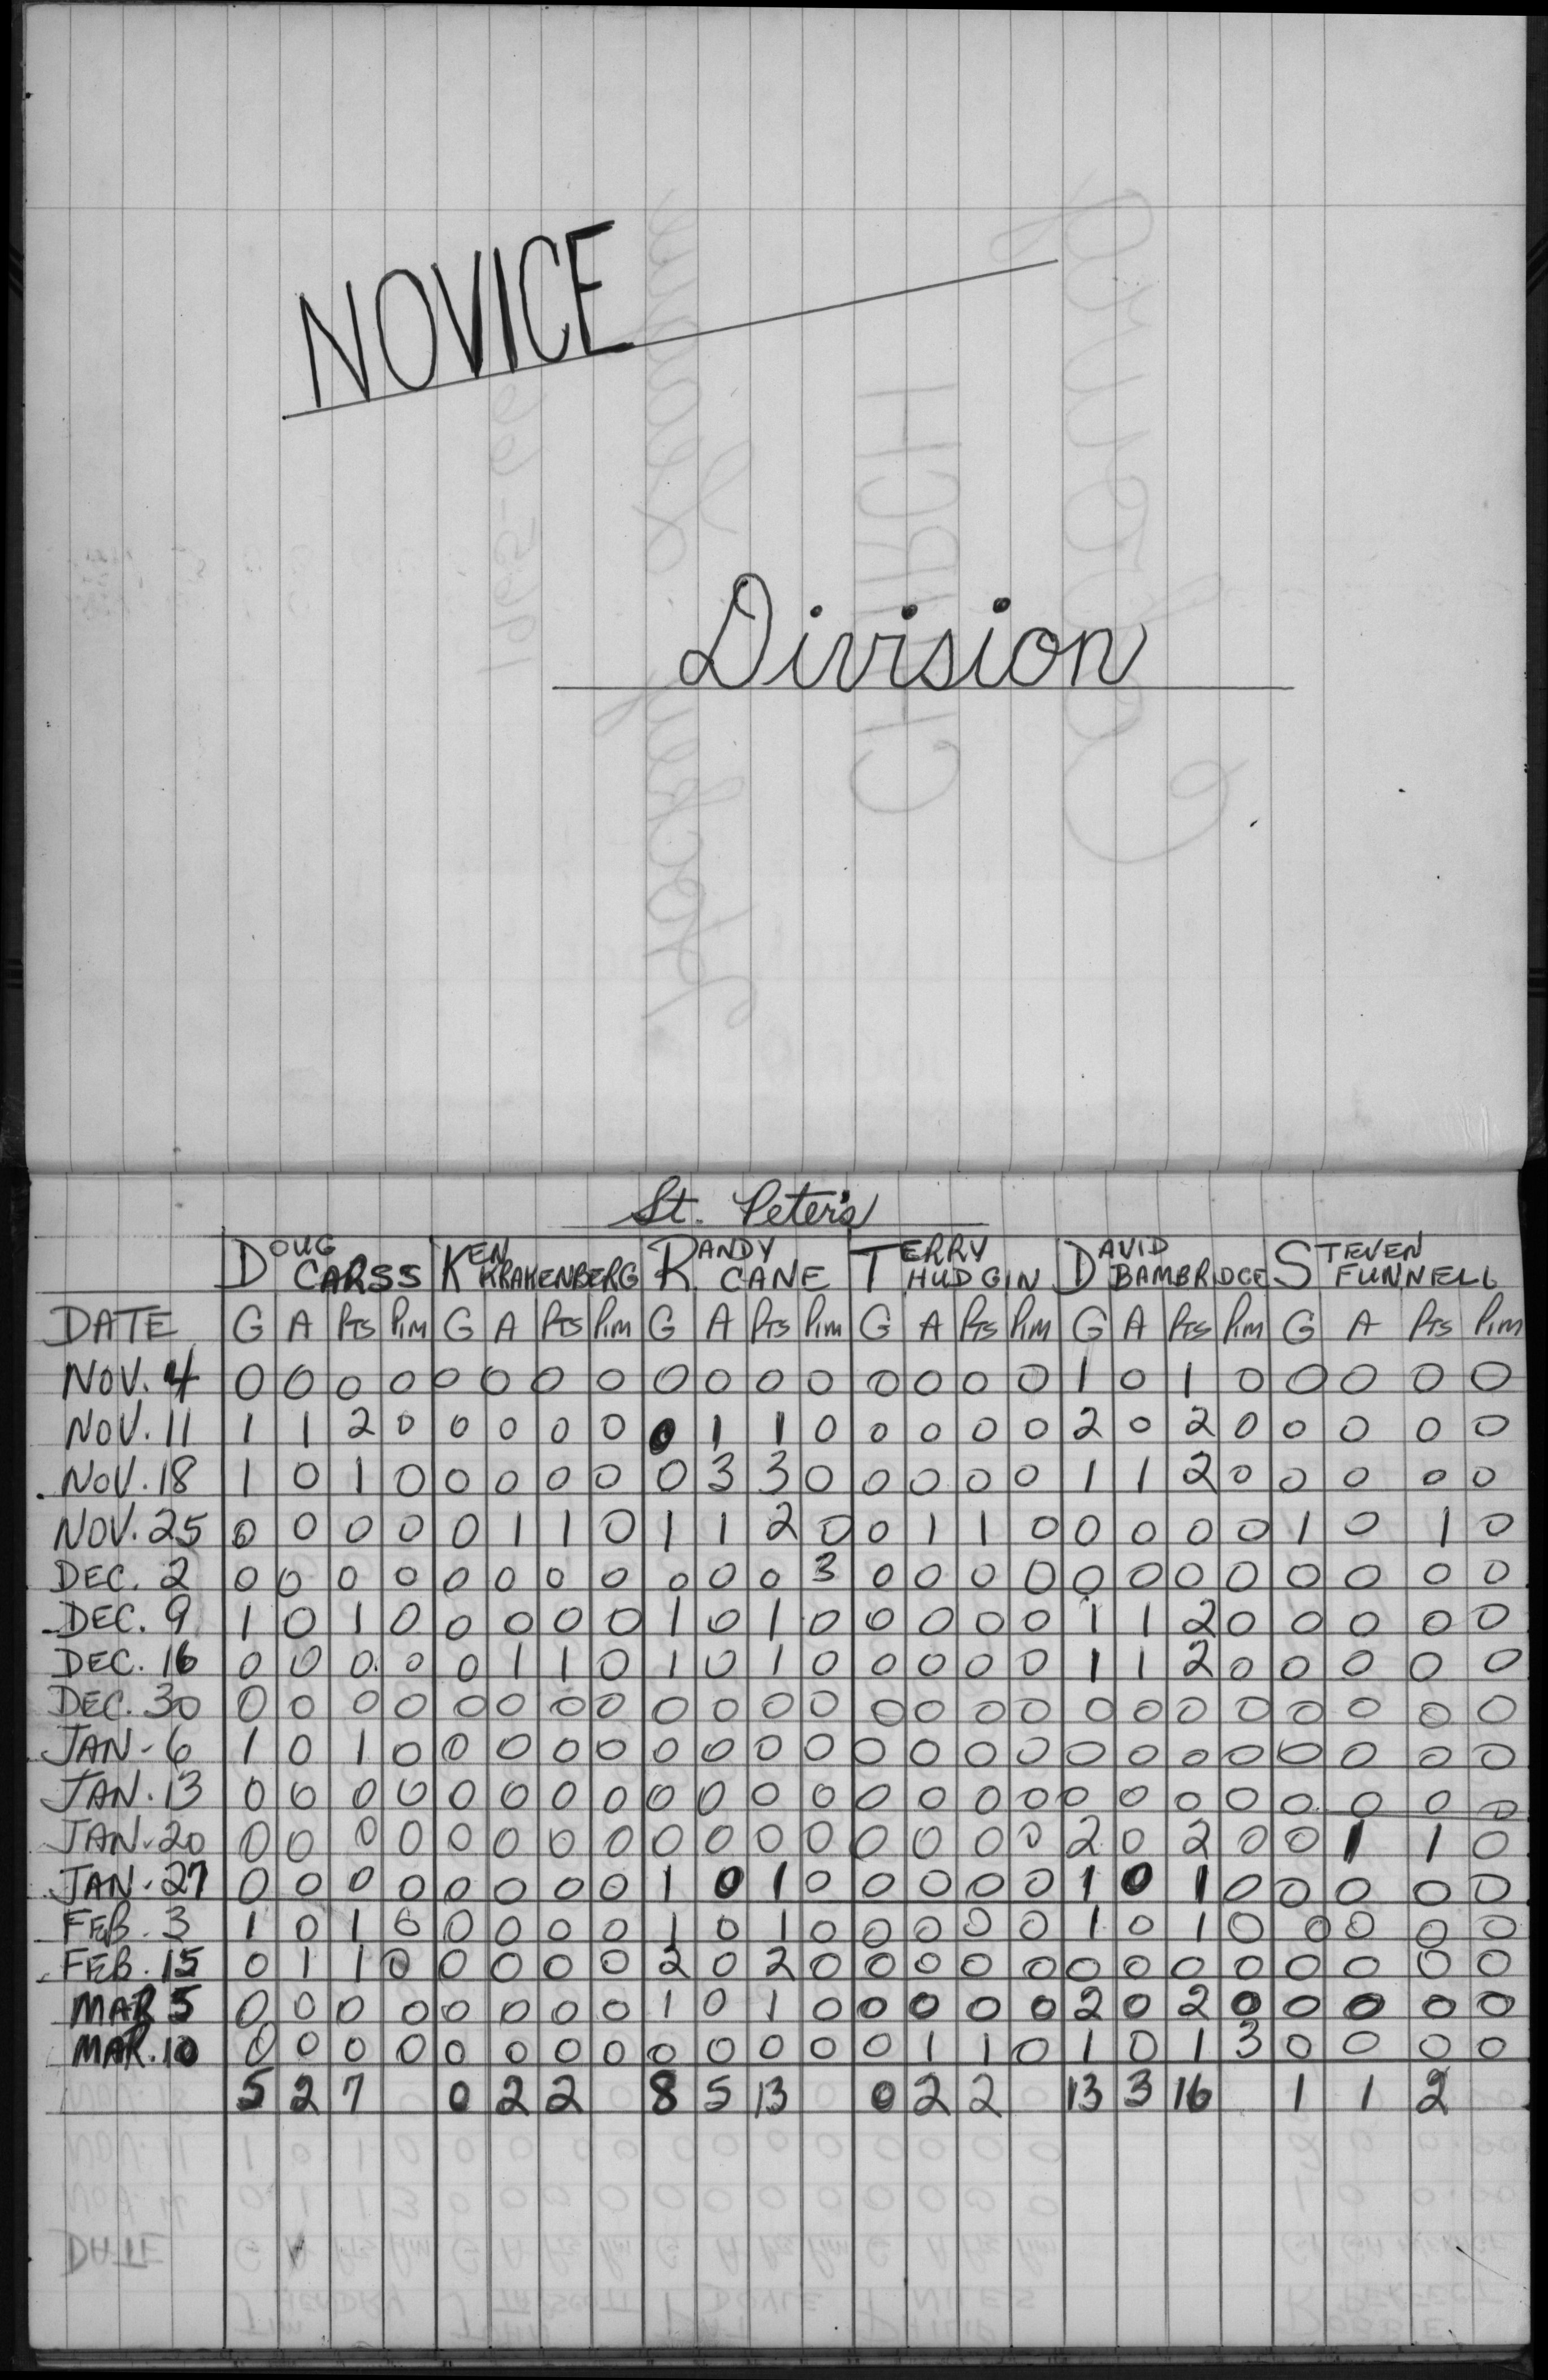 NOVICE
Division
St. Peter's
DOUG CARSS KEN KRAKENBERG RANDY CANE TERRY HUDGIN DAVID BAMBRIDGE STEVEN FUNNELL
DATE G A Pts Pim G A Pts Pim G A Pts Pim G A Pts Pim G A Pts Pim G A Pts Pim
NOV. 4 0 0 0 0 0 0 0 0 0 0 0 0 0 0 0 0 1 0 1 0 0 0 0 0
NOV. 11 1 1 2 0 0 0 0 0 0 1 1 0 0 0 0 0 2 0 2 0 0 0 0 0
NOV. 18 1 0 1 0 0 0 0 0 0 3 3 0 0 0 0 0 1 1 2 0 0 0 0 0
NOV. 25 0 0 0 0 0 1 1 0 1 1 2 0 0 1 1 0 0 0 0 0 1 0 1 0
DEC. 2 0 0 0 0 0 0 0 0 0 0 0 3 0 0 0 0 0 0 0 0 0 0 0 0
DEC. 9 1 0 1 0 0 0 0 0 1 0 1 0 0 0 0 0 1 1 2 0 0 0 0 0
DEC. 16 0 0 0 0 0 1 1 0 1 0 1 0 0 0 0 0 1 1 2 0 0 0 0 0
DEC. 30 0 0 0 0 0 0 0 0 0 0 0 0 0 0 0 0 0 0 0 0 0 0 0 0
JAN. 6 1 0 1 0 0 0 0 0 0 0 0 0 0 0 0 0 0 0 0 0 0 0 0 0
JAN. 13 0 0 0 0 0 0 0 0 0 0 0 0 0 0 0 0 0 0 0 0 0 0 0 0
JAN. 20 0 0 0 0 0 0 0 0 0 0 0 0 0 0 0 0 2 0 2 0 0 1 1 0
JAN. 27 0 0 0 0 0 0 0 0 1 0 1 0 0 0 0 0 1 0 1 0 0 0 0 0
FEB. 3 1 0 1 0 0 0 0 0 1 0 1 0 0 0 0 0 1 0 1 0 0 0 0 0
FEB. 15 0 1 1 0 0 0 0 0 2 0 2 0 0 0 0 0 0 0 0 0 0 0 0 0
MAR 5 0 0 0 0 0 0 0 0 1 0 1 0 0 0 0 0 2 0 2 0 0 0 0 0
MAR. 10 0 0 0 0 0 0 0 0 0 0 0 0 0 1 1 0 1 0 1 3 0 0 0 0
5 2 7 0 2 2 8 5 13 0 2 2 13 3 16 1 1 2